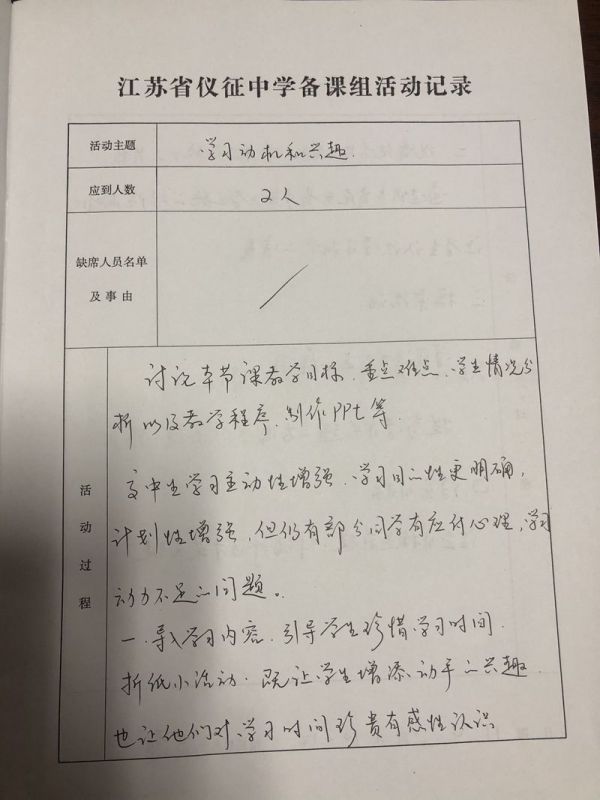 江苏省仪征中学备课组活动记录
活动主题
学习动机和兴趣.
应到人数
2人
缺席人员名单
及事由
活动过程
讨论本节课教学目标、重点难点、学生情况分
析以及教学程序、制作PPt等.
高中生学习主动性增强、学习目的性更明确,
计划性增强,但仍有部分同学有应付心理,学习
动力不足的问题。
一、导入学习内容、引导学生珍惜学习时间.
折纸小活动.既让学生增添动手的兴趣
也让他们对学习时间珍贵有感性认识